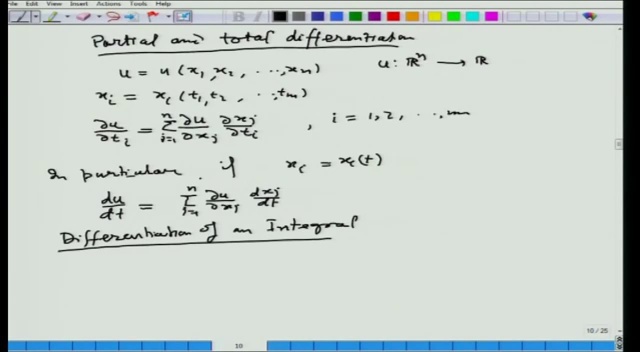 File Edit View Insert Actions Tools Help
Partial and total differentiation
u = u (x₁, x₂, ..., xₙ) u: ℝⁿ → ℝ
xᵢ = xᵢ (t₁, t₂, ..., tₘ)
∂u/∂tᵢ = Σⱼ₌₁ⁿ ∂u/∂xⱼ ∂xⱼ/∂tᵢ , i = 1, 2, ..., m
In particular, if xᵢ = xᵢ(t)
du/dt = Σⱼ₌₁ⁿ ∂u/∂xⱼ dxⱼ/dt
Differentiation of an Integral
10 / 25
10